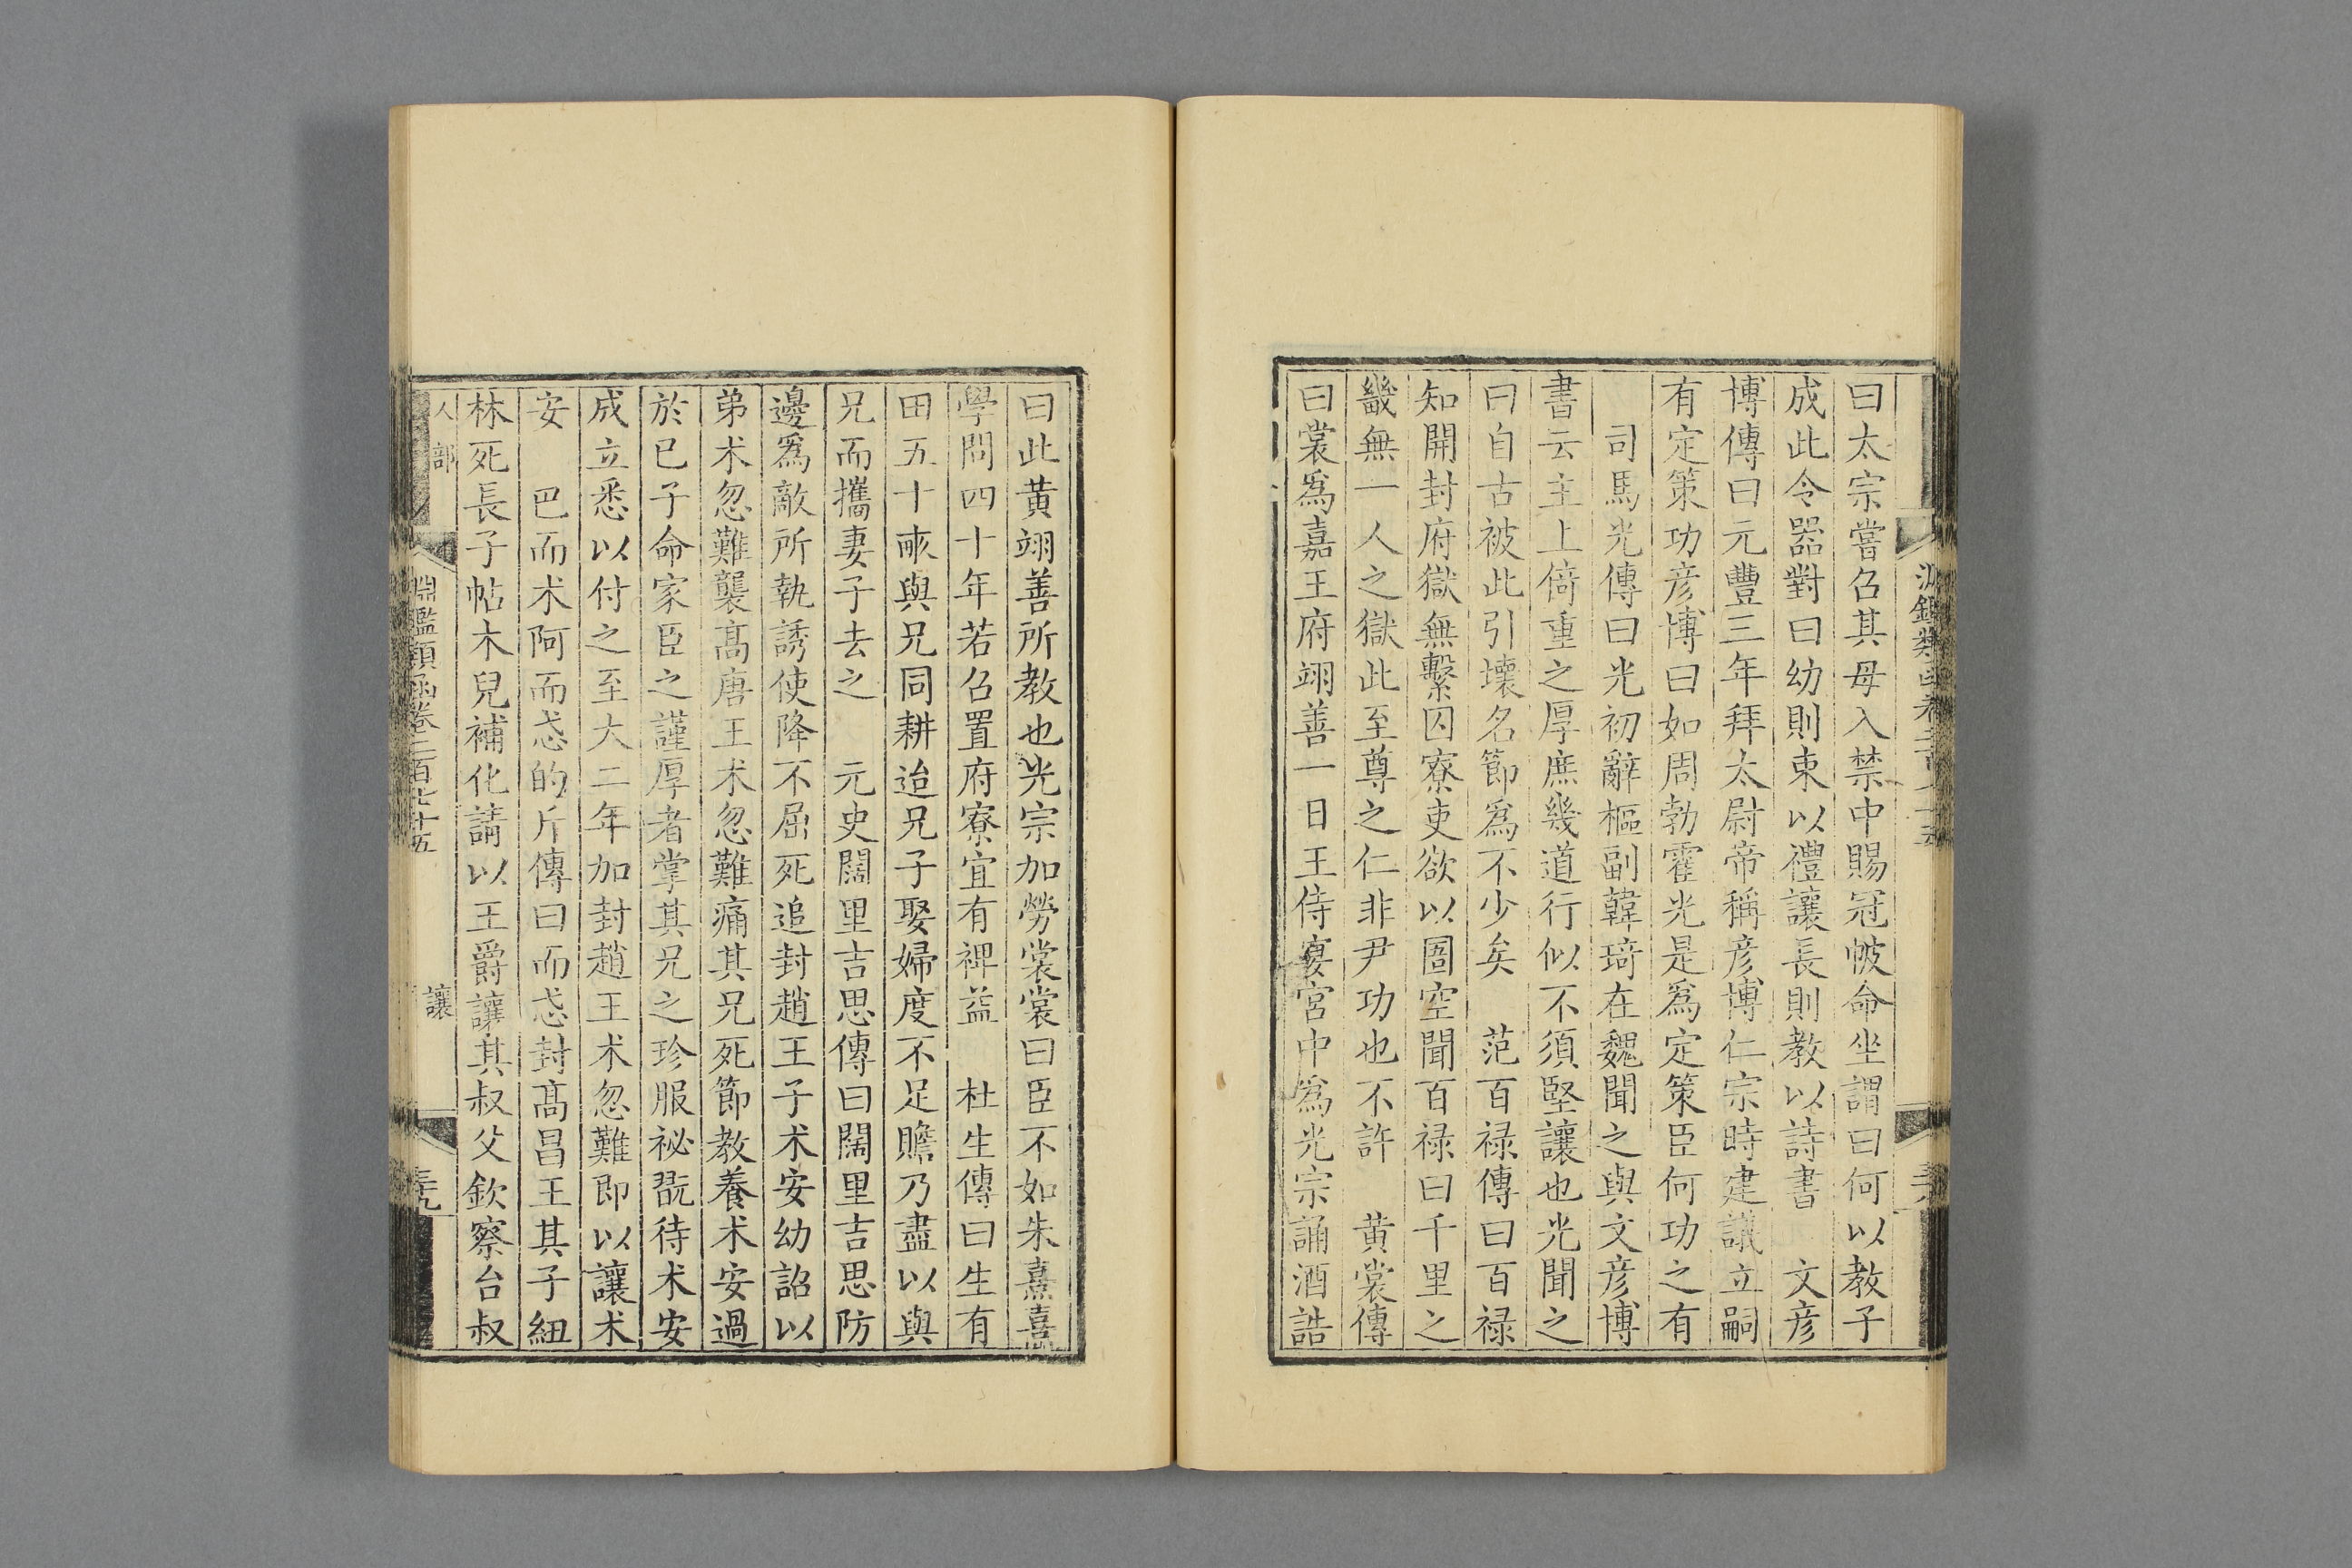 曰太宗嘗召其母入禁中賜冠帔命坐謂曰何以教子
成此令器對曰幼則束以禮讓長則教以詩書　文彥
博傳曰元豐三年拜太尉帝稱彥博仁宗時建議立嗣
有定策功彥博曰如周勃霍光是爲定策臣何功之有
司馬光傳曰光初辭樞副韓琦在魏聞之與文彥博
書云主上倚重之厚庶幾道行似不須堅讓也光聞之
曰自古被此引壞名節爲不少矣　范百祿傳曰百祿
知開封府獄無繫囚寮吏欲以圄空聞百祿曰千里之
畿無一人之獄此至尊之仁非尹功也不許　黄裳傳
曰裳爲嘉王府翊善一日王侍宴宮中爲光宗誦酒誥
曰此黄翊善所教也光宗加勞裳裳曰臣不如朱熹熹
學問四十年若召置府寮宜有裨益　杜生傳曰生有
田五十畝與兄同耕迨兄子娶婦度不足贍乃盡以與
兄而攜妻子去之　元史闊里吉思傳曰闊里吉思防
邊爲敵所執誘使降不屈死追封趙王子术安幼詔以
弟术忽難襲高唐王术忽難痛其兄死節教養术安過
於已子命家臣之謹厚者掌其兄之珍服祕翫待术安
成立悉以付之至大二年加封趙王术忽難即以讓术
安　巴而术阿而忒的斤傳曰而忒封高昌王其子紐
林死長子帖木兒補化請以王爵讓其叔父欽察台叔
人部
淵鑑類函卷二百七十五
讓
三十九